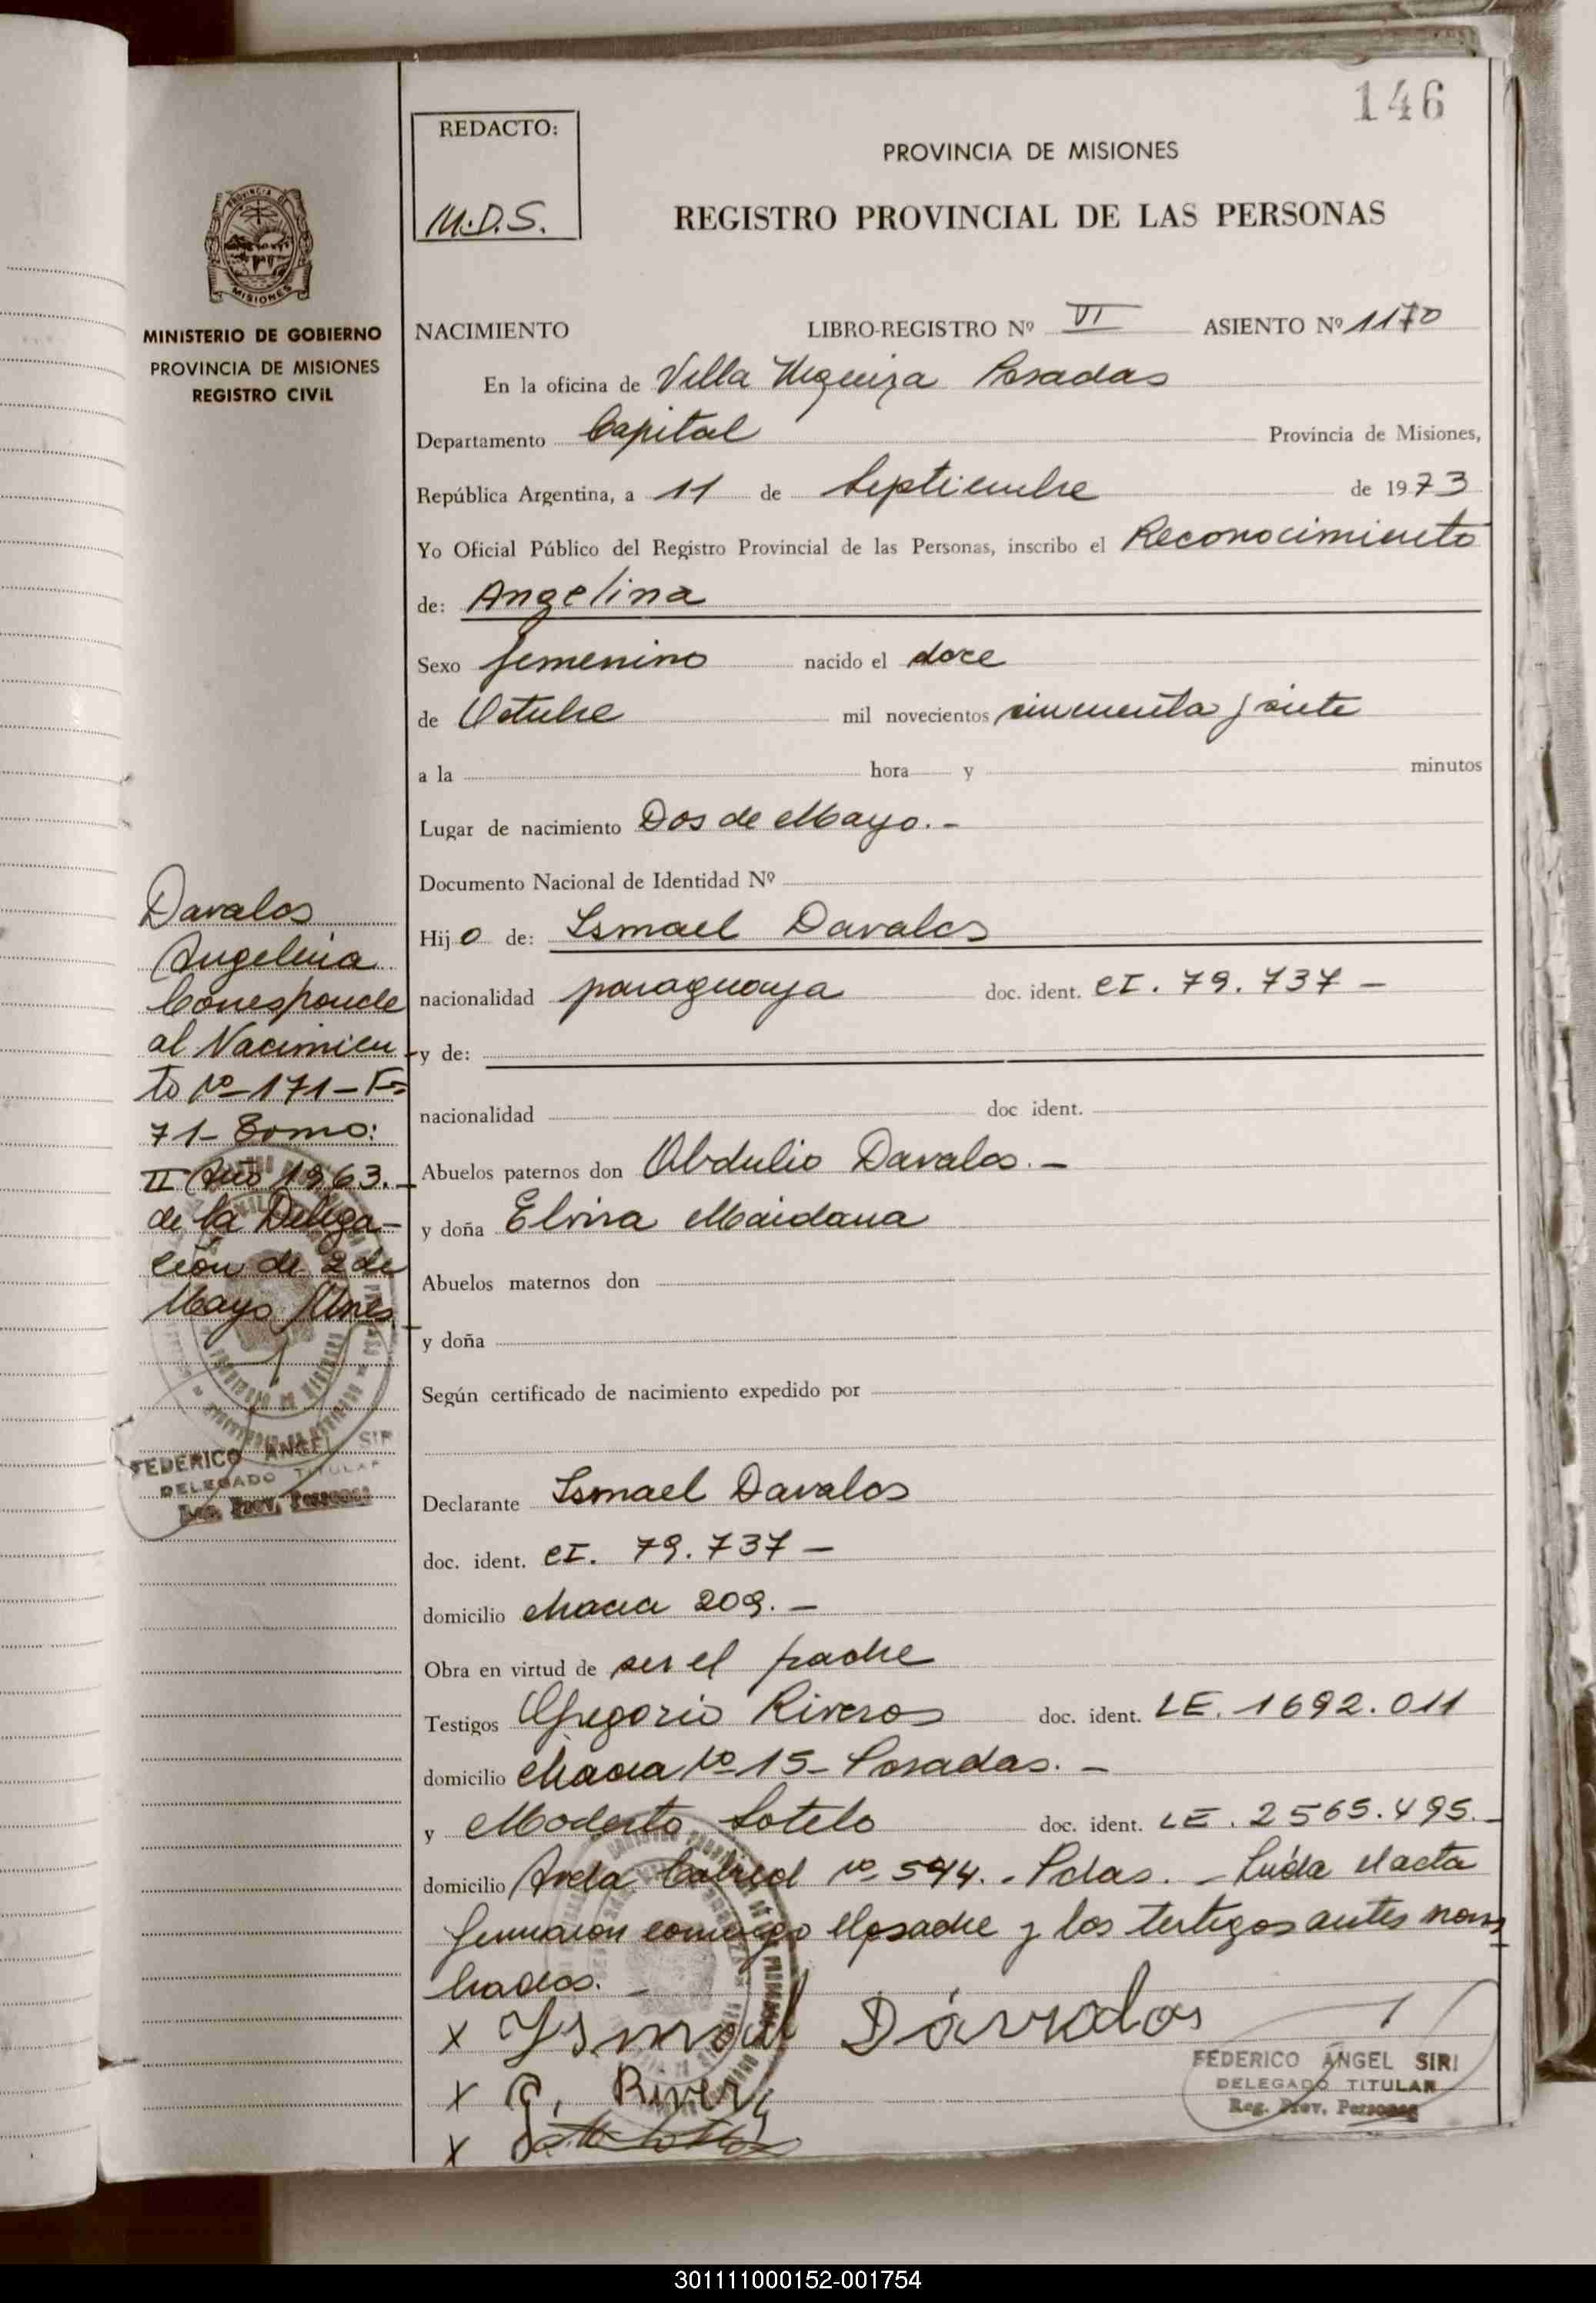 146
REDACTO:
M.D.S.
PROVINCIA DE MISIONES
REGISTRO PROVINCIAL DE LAS PERSONAS
MISIONES
MINISTERIO DE GOBIERNO
PROVINCIA DE MISIONES
REGISTRO CIVIL
NACIMIENTO LIBRO-REGISTRO Nº VI ASIENTO Nº 1170
En la oficina de Villa Urquiza Posadas
Departamento Capital Provincia de Misiones,
República Argentina, a 11 de Septiembre de 1973
Yo Oficial Público del Registro Provincial de las Personas, inscribo el Reconocimiento
de: Angelina
Sexo femenino nacido el doce
de Octubre mil novecientos cincuenta y siete
a la hora y minutos
Lugar de nacimiento Dos de Mayo.-
Documento Nacional de Identidad Nº
Hijo de: Ismael Davalos
nacionalidad paraguaya doc. ident. CI. 79.737 -
y de:
nacionalidad doc ident.
Abuelos paternos don Obdulio Davalos.-
y doña Elvira Maidana
Abuelos maternos don
y doña
Según certificado de nacimiento expedido por
Declarante Ismael Davalos
doc. ident. CI. 79.737 -
domicilio chacra 209.-
Obra en virtud de ser el padre
Testigos Gregorio Riveros doc. ident. LE. 1692.011
domicilio chacra Nº 15- Posadas.-
y Modesto Sotelo doc. ident. LE. 2565.495.-
domicilio Avda Cabred Nº 594.- Pdas.- Leída el acta
firmaron conmigo el padre y los testigos antes nom
brados.-
x Ismael Dávalos
x G. River
x
FEDERICO ÁNGEL SIRI
DELEGADO TITULAR
Reg. Prov. Personas
Davalos
Angelina
Corresponde
al Nacimien
to Nº-171-Fº
71- Tomo:
II Año 1963.-
de la Delega-
ción de 2 de
Mayo Mnes
FEDERICO ANGEL SIRI
DELEGADO TITULAR
Reg. Prov. Personas
301111000152-001754